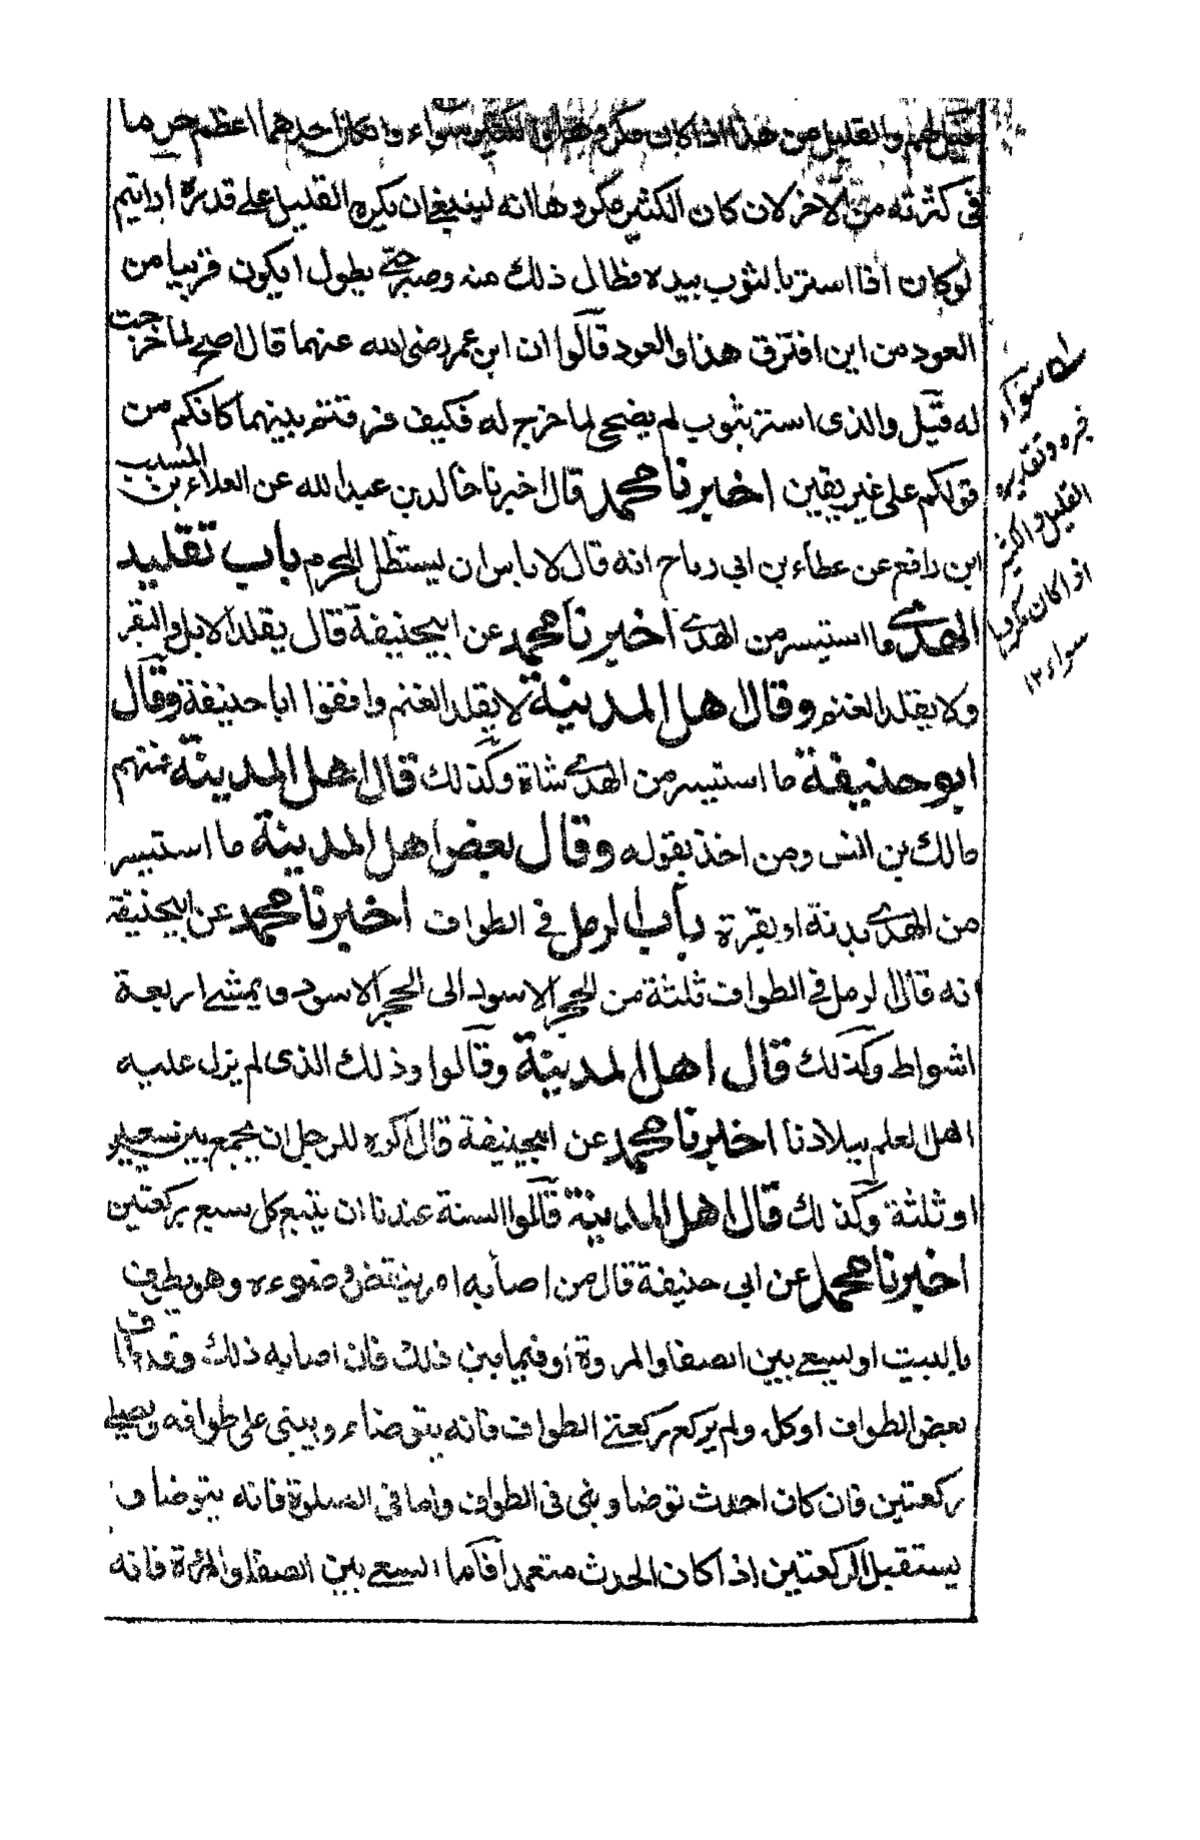 قيل لهم والقليل من هذا اذا كان مكروها والكثير سواء وان كان احدهما اعظم جرما
في كثرته من الآخر لان كان الكثير مكروها انه لينبغي ان يكره القليل على قدره أرأيتم
لو كان اذا استتر بالثوب بيده فطال ذلك منه وصبر حتى يطول ايكون قريبا من
العود من اين افترق هذا والعود قالوا ان ابن عمر رضي الله عنهما قال اضح لما خرجت
له قيل والذى استتر بثوب لم يضحى لما خرج له فكيف فرقتم بينهما كانكم من
قولكم على غير يقين اخبرنا محمد قال اخبرنا خالد بن عبد الله عن العلاء بن المسيب
ابن رافع عن عطاء بن ابى رباح انه قال لا باس ان يستظل المحرم باب تقليد
الهدى وما استيسر من الهدى اخبرنا محمد عن ابيحنيفة قال يقلد الابل والبقر
ولا يقلد الغنم وقال اهل المدينة لا يقلد الغنم وافقوا ابا حنيفة وقال
ابو حنيفة ما استيسر من الهدى شاة وكذلك قال اهل المدينة منهم
مالك بن انس ومن اخذ بقوله وقال بعض اهل المدينة ما استيسر
من الهدى بدنة او بقرة باب الرمل في الطواف اخبرنا محمد عن ابيحنيفة
انه قال الرمل في الطواف ثلثة من الحجر الاسود الى الحجر الاسود ويمشى اربعة
اشواط وكذلك قال اهل المدينة وقالوا وذلك الذى لم يزل عليه
اهل العلم ببلادنا اخبرنا محمد عن ابيحنيفة قال اكره للرجل ان يجمع بين سبعين
او ثلثة وكذلك قال اهل المدينة قالوا السنة عندنا ان يتبع كل سبع بركعتين
اخبرنا محمد عن ابى حنيفة قال من اصابه امر ينقض وضوءه وهو يطوف
بالبيت او يسعى بين الصفا والمروة او فيما بين ذلك فان اصابه ذلك وقد طاف
بعض الطواف او كله ولم يركع ركعتى الطواف فانه يتوضاء ويبنى على طوافه ويصلى
ركعتين فان كان احدث توضا وبنى فى الطواف واما فى الصلوة فانه يتوضا و
يستقبل الركعتين اذا كان الحدث متعمدا فاما السعى بين الصفا والمروة فانه
اى سواء
خبره وتقديره
القليل والكثير
اذا كان مكروها
سواء ١٢